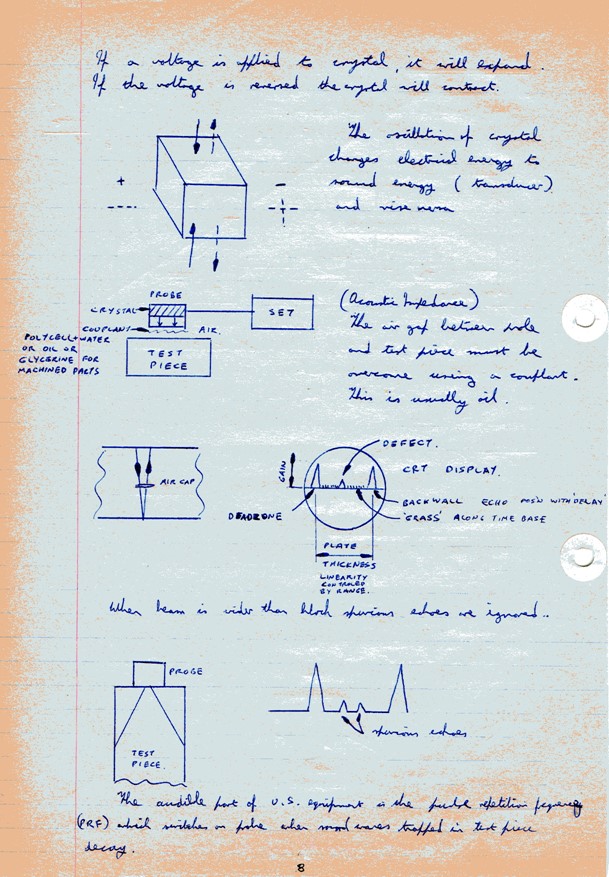 If a voltage is applied to crystal, it will expand.
If the voltage is reversed the crystal will contract.
The oscillation of crystal
changes electrical energy to
sound energy (transducer)
and vise versa
+
-
----
-
+
-
PROBE
CRYSTAL
SET
COUPLANT
AIR.
POLYCELL+WATER
OR OIL OR
GLYCERINE FOR
MACHINED PARTS
TEST
PIECE
(Acoustic Impedance)
The air gap between
and test piece must be
overcome using a couplant.
This is usually oil.
AIR GAP
GAIN
DEFECT.
CRT DISPLAY.
BACKWALL ECHO POS'N WITH 'DELAY'
'GRASS' ALONG TIME BASE
DEADZONE
PLATE
THICKNESS
LINEARITY
CONTROLED
BY RANGE.
When beam is wider than block spurious echoes are ignored..
PROBE
TEST
PIECE.
spurious echoes
The audible part of U.S. equipment is the repetition frequency
(PRF) which switches on pulse when sound waves trapped in test piece
decay.
8